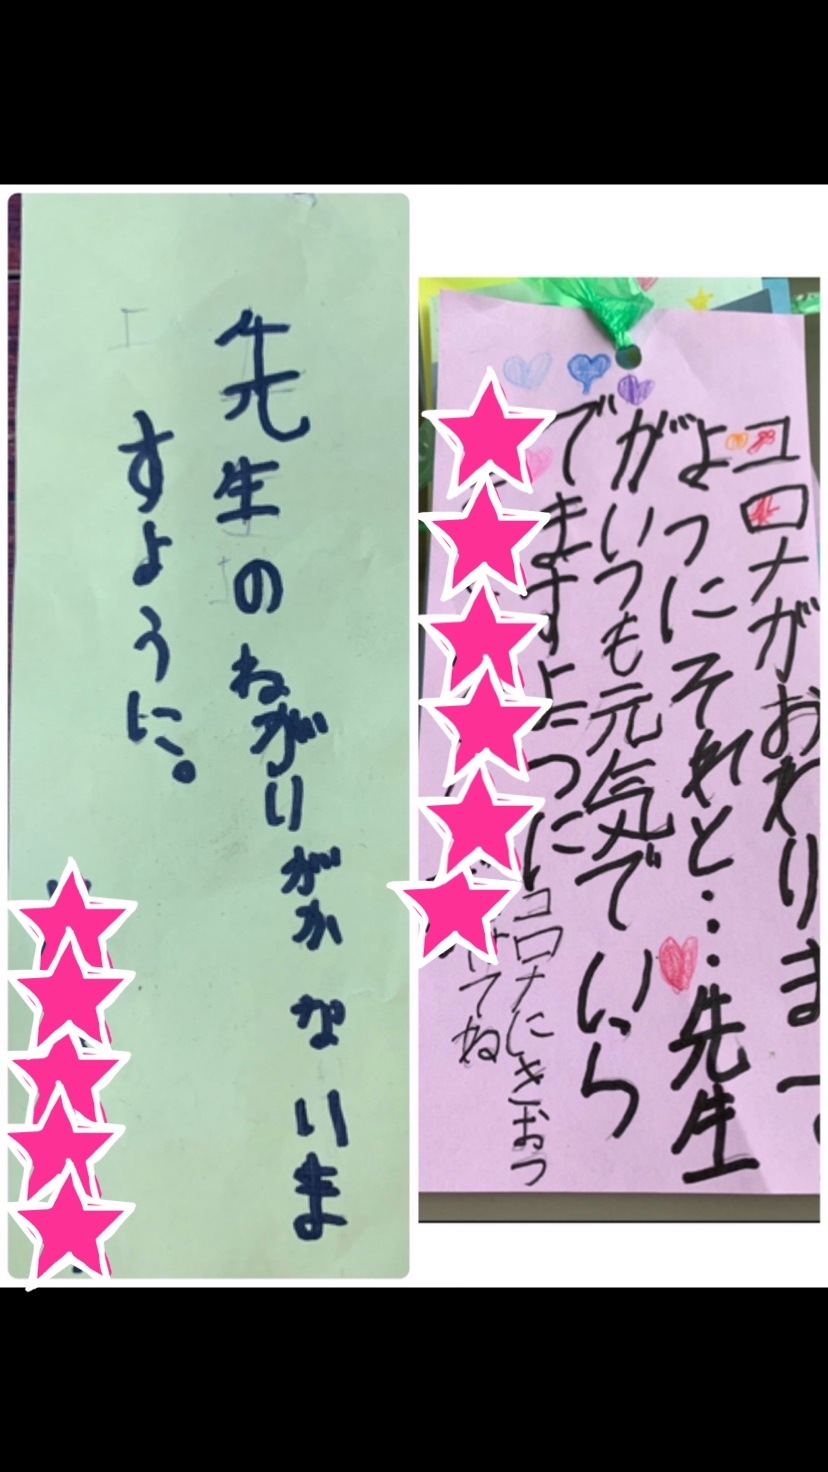 先生のねがいがかないま
すように。
コロナがおわりま
ようにそれと…先生
がいつも元気でいら
でますように
コロナにきおつ
けてね